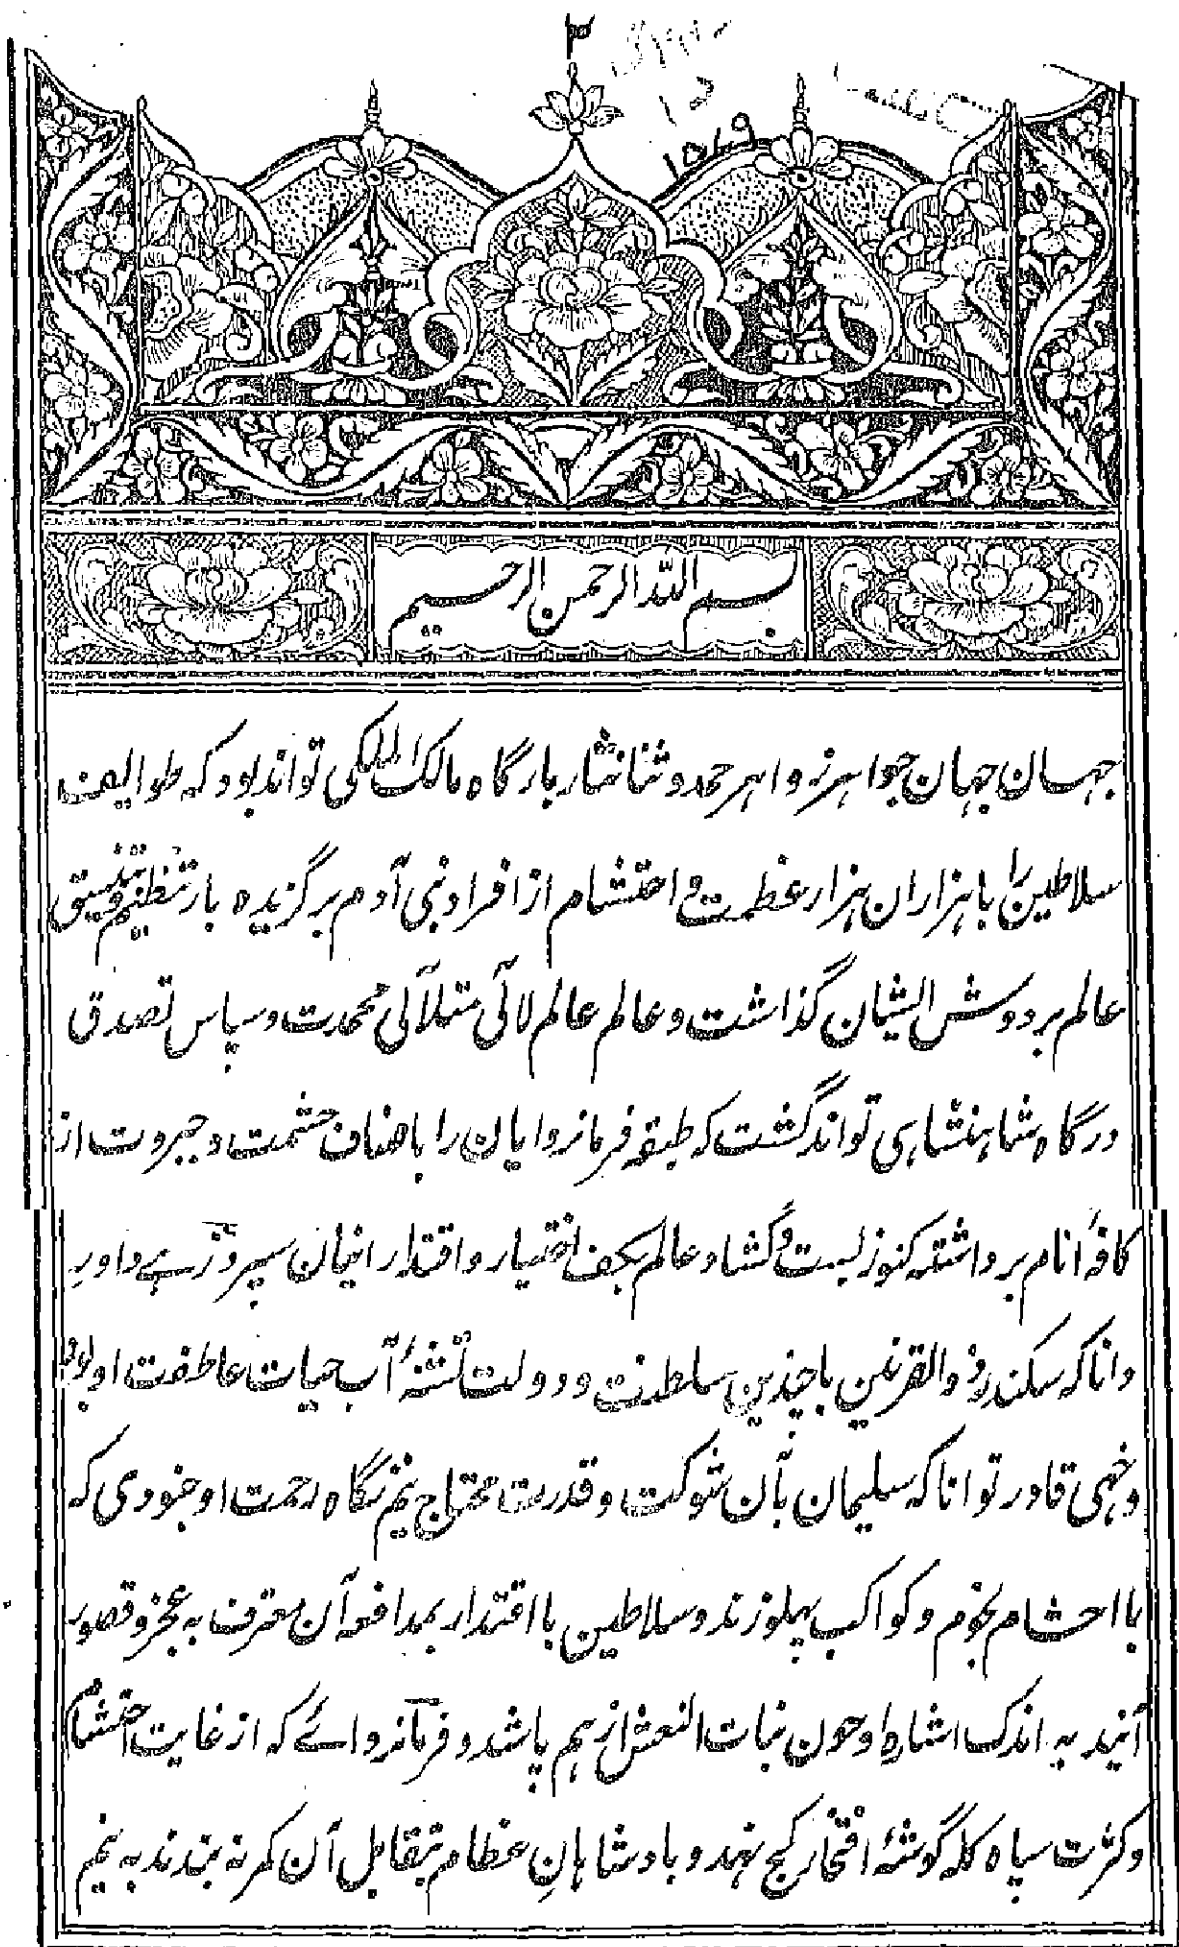 ۲
۱۵۶۹
بسم الله الرحمن الرحیم
جهان جهان جواهر زواهر حمد و ثنا نثار بارگاه مالک الملکی تواند بود که طوایف
سلاطین را با هزاران هزار عظمت و احتشام از افراد بنی آدم برگزیده بار تنظیم و تنسیق
عالم بر دوش ایشان گذاشت و عالم عالم لآلی متلألی محمدت و سپاس تصدق
درگاه شاهنشاهی تواند گشت که طبقه فرمانروایان را باصناف حشمت و جبروت از
کافهٔ انام برداشته کنوز بست و گشاد عالم بکف اختیار و اقتدار اینان سپرد زہے داور
دانا که سکندر ذوالقرنین با چندین سلطنت و دولت تشنهٔ آب حیات عاطفت او بود
و خهی قادر توانا که سلیمان بآن شوکت و قدرت محتاج نیم نگاه رحمت او جنودی که
با احشام نجوم و کواکب پهلو زند و سلاطین با اقتدار بمدافعه آن معترف به عجز و قصور
آیند به اندک اشارهٔ او چون بنات النعش از هم پاشد و فرمانروائے که از غایت احتشام
و کثرت سپاه کله گوشهٔ افتخار کج نهد و بادشاهانِ عظام بتقابل آن کمر نه بندند به نیم